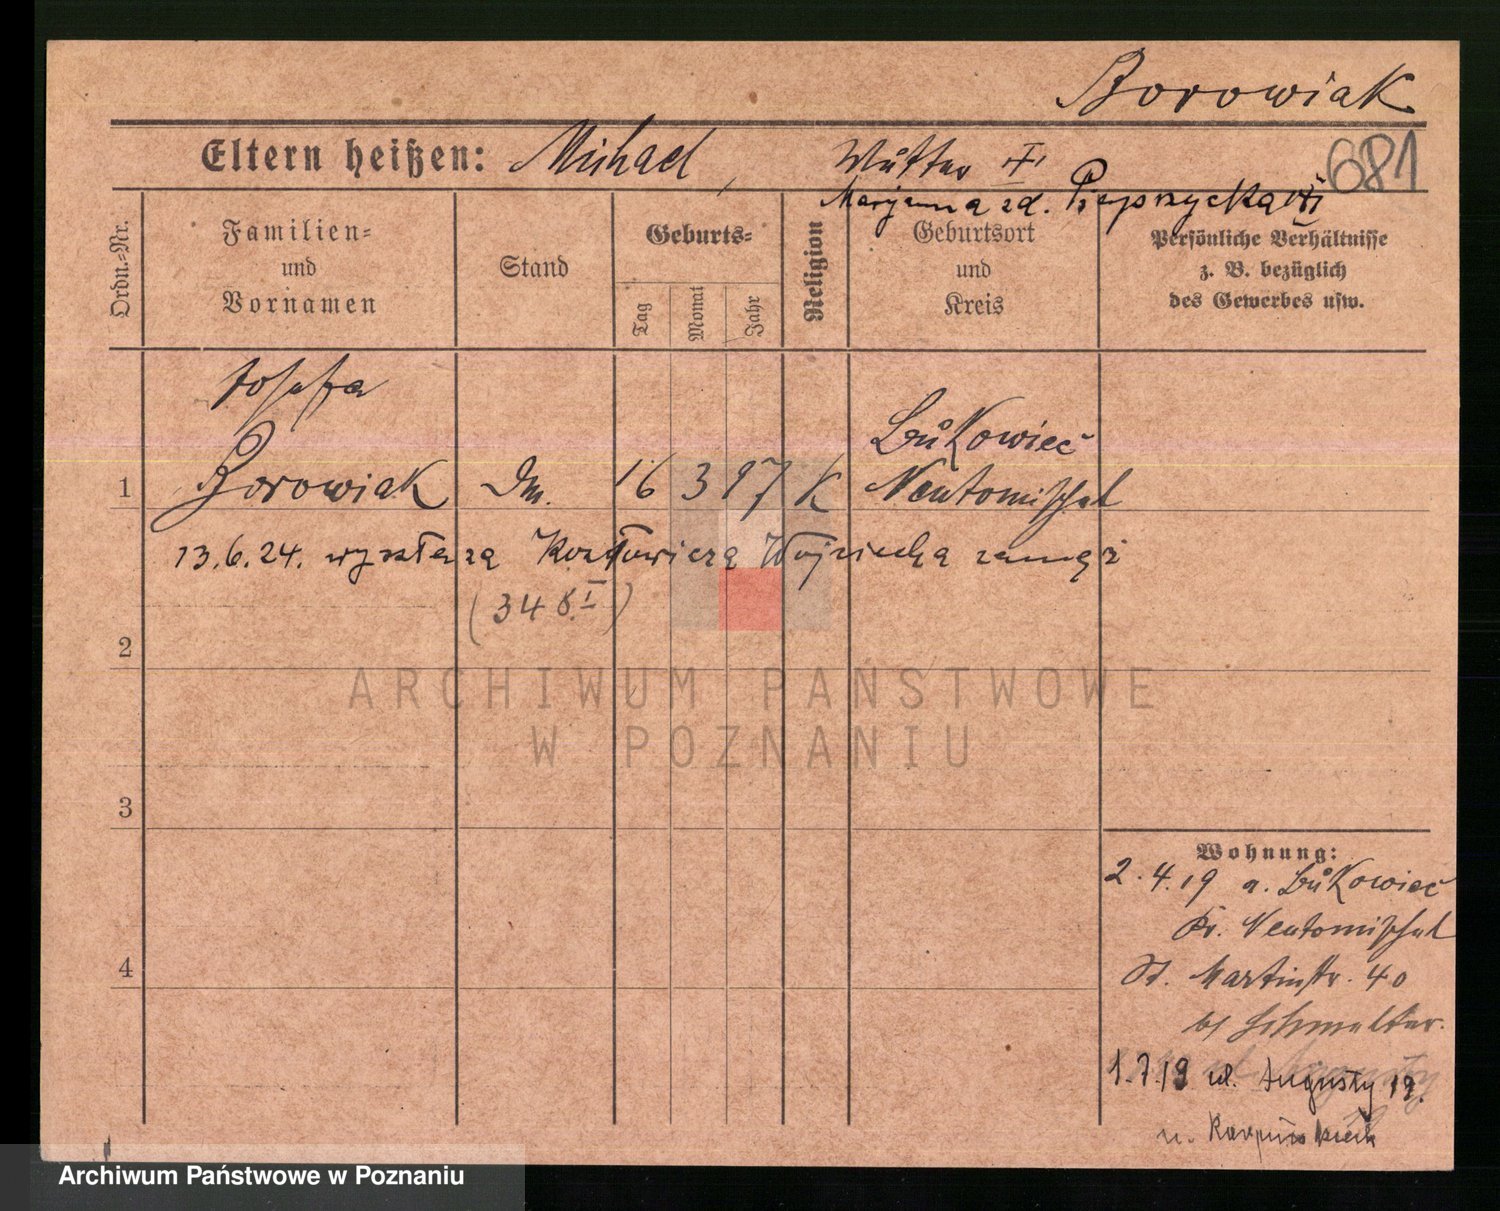 Borowiak
Eltern heißen: Michael, Mutter †
681
Marjanna zd. Pieprzycka †
Ordn.-Nr.
Familien-
und
Vornamen
Stand
Geburts-
Tag
Monat
Jahr
Religion
Geburtsort
und
Kreis
Persönliche Verhältnisse
z. B. bezüglich
des Gewerbes usw.
Josefa
Bukowiec
1 Borowiak Dm. 16 3 97 K Neutomischel
13.6.24. wyszła za Kozłowicza Wojciecha zamąż
(348 I)
2
ARCHIWUM PAŃSTWOWE
W POZNANIU
3
Wohnung:
2.4.19 a. Bukowiec
Kr. Neutomischel
4
St. Martinstr. 40
b/
1.7.19 ul. Augusty 19.
u.
Archiwum Państwowe w Poznaniu